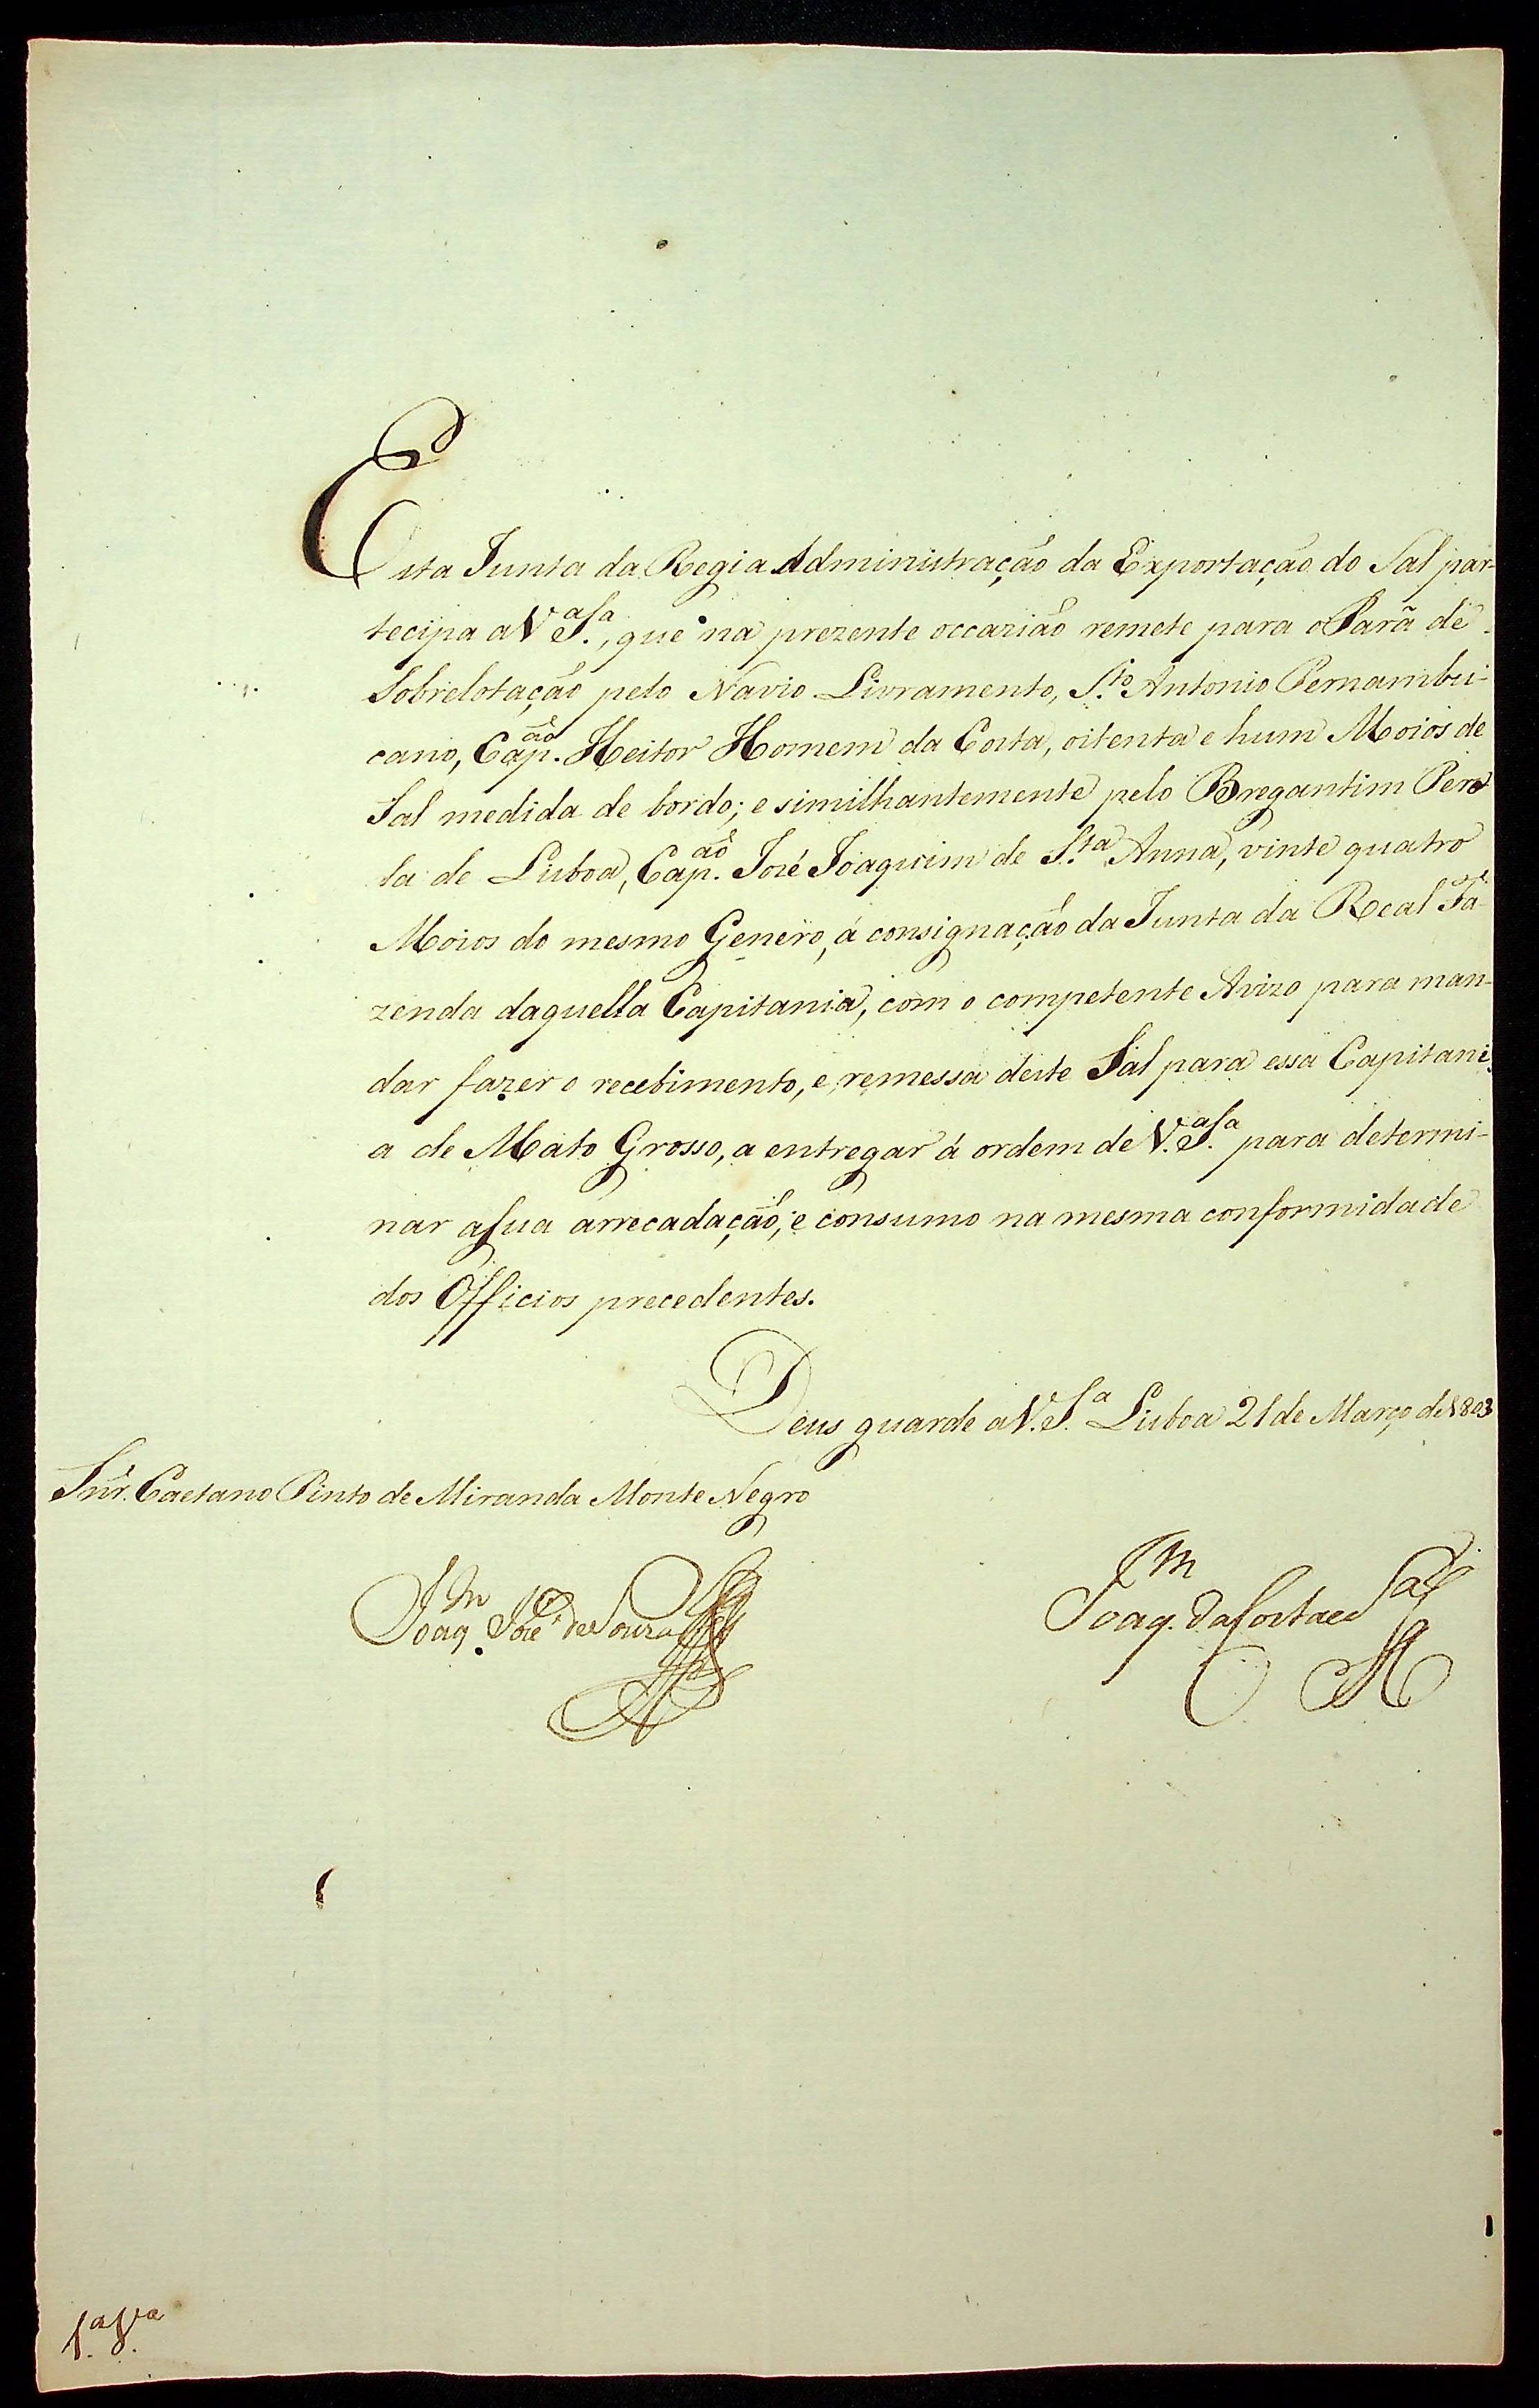 Esta Junta da Regia Administração da Exportação do Sal par-
tecipa a V.ª S.ª, que na prezente occazião remete para o Pará de
Sobrelotação pelo Navio Livramento, S.to Antonio Pernambu-
cano, Cap.ão Heitor Homem da Costa, oitenta e hum Moios de
Sal medida de bordo; e similhantemente pelo Bregantim Pero-
la de Lisboa, Cap.ão José Joaquim de S.ta Anna, vinte quatro
Moios do mesmo Genero, á consignação da Junta da Real Fa-
zenda daquella Capitania, com o competente Avizo para man-
dar fazer o recebimento, e remessa deste Sal para essa Capitani-
a de Mato Grosso, a entregar á ordem de V.ª S.ª para determi-
nar a sua arrecadação, e consumo na mesma conformidade
dos Officios precedentes.
Deus guarde a V. S.ª Lisboa 21 de Março de 1803
Snr. Caetano Pinto de Miranda Monte Negro
Joaq.m José de Souza
Joaq.m da Costa e Sá
1.ª V.ia